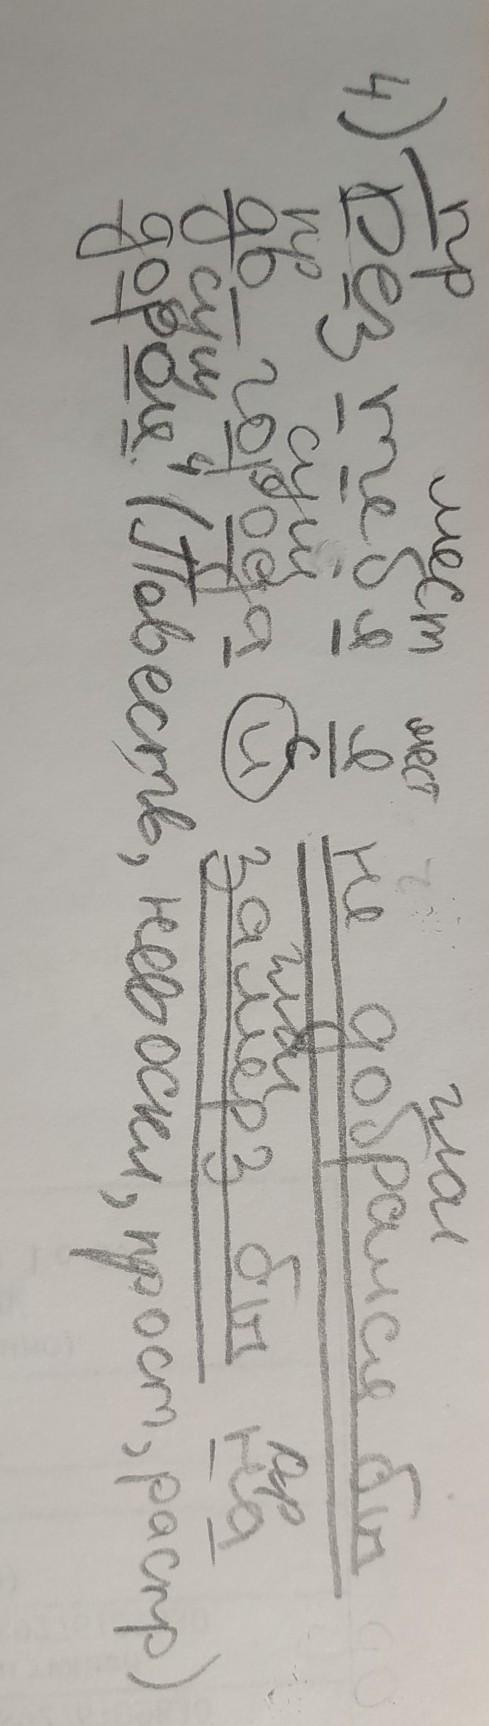 пр мест мест глаг
4) Без тебя я не добрался бы
пр сущ с глаг пр
до города и замерз бы на
сущ
дороге" (Повеств, невоскл, прост, распр)